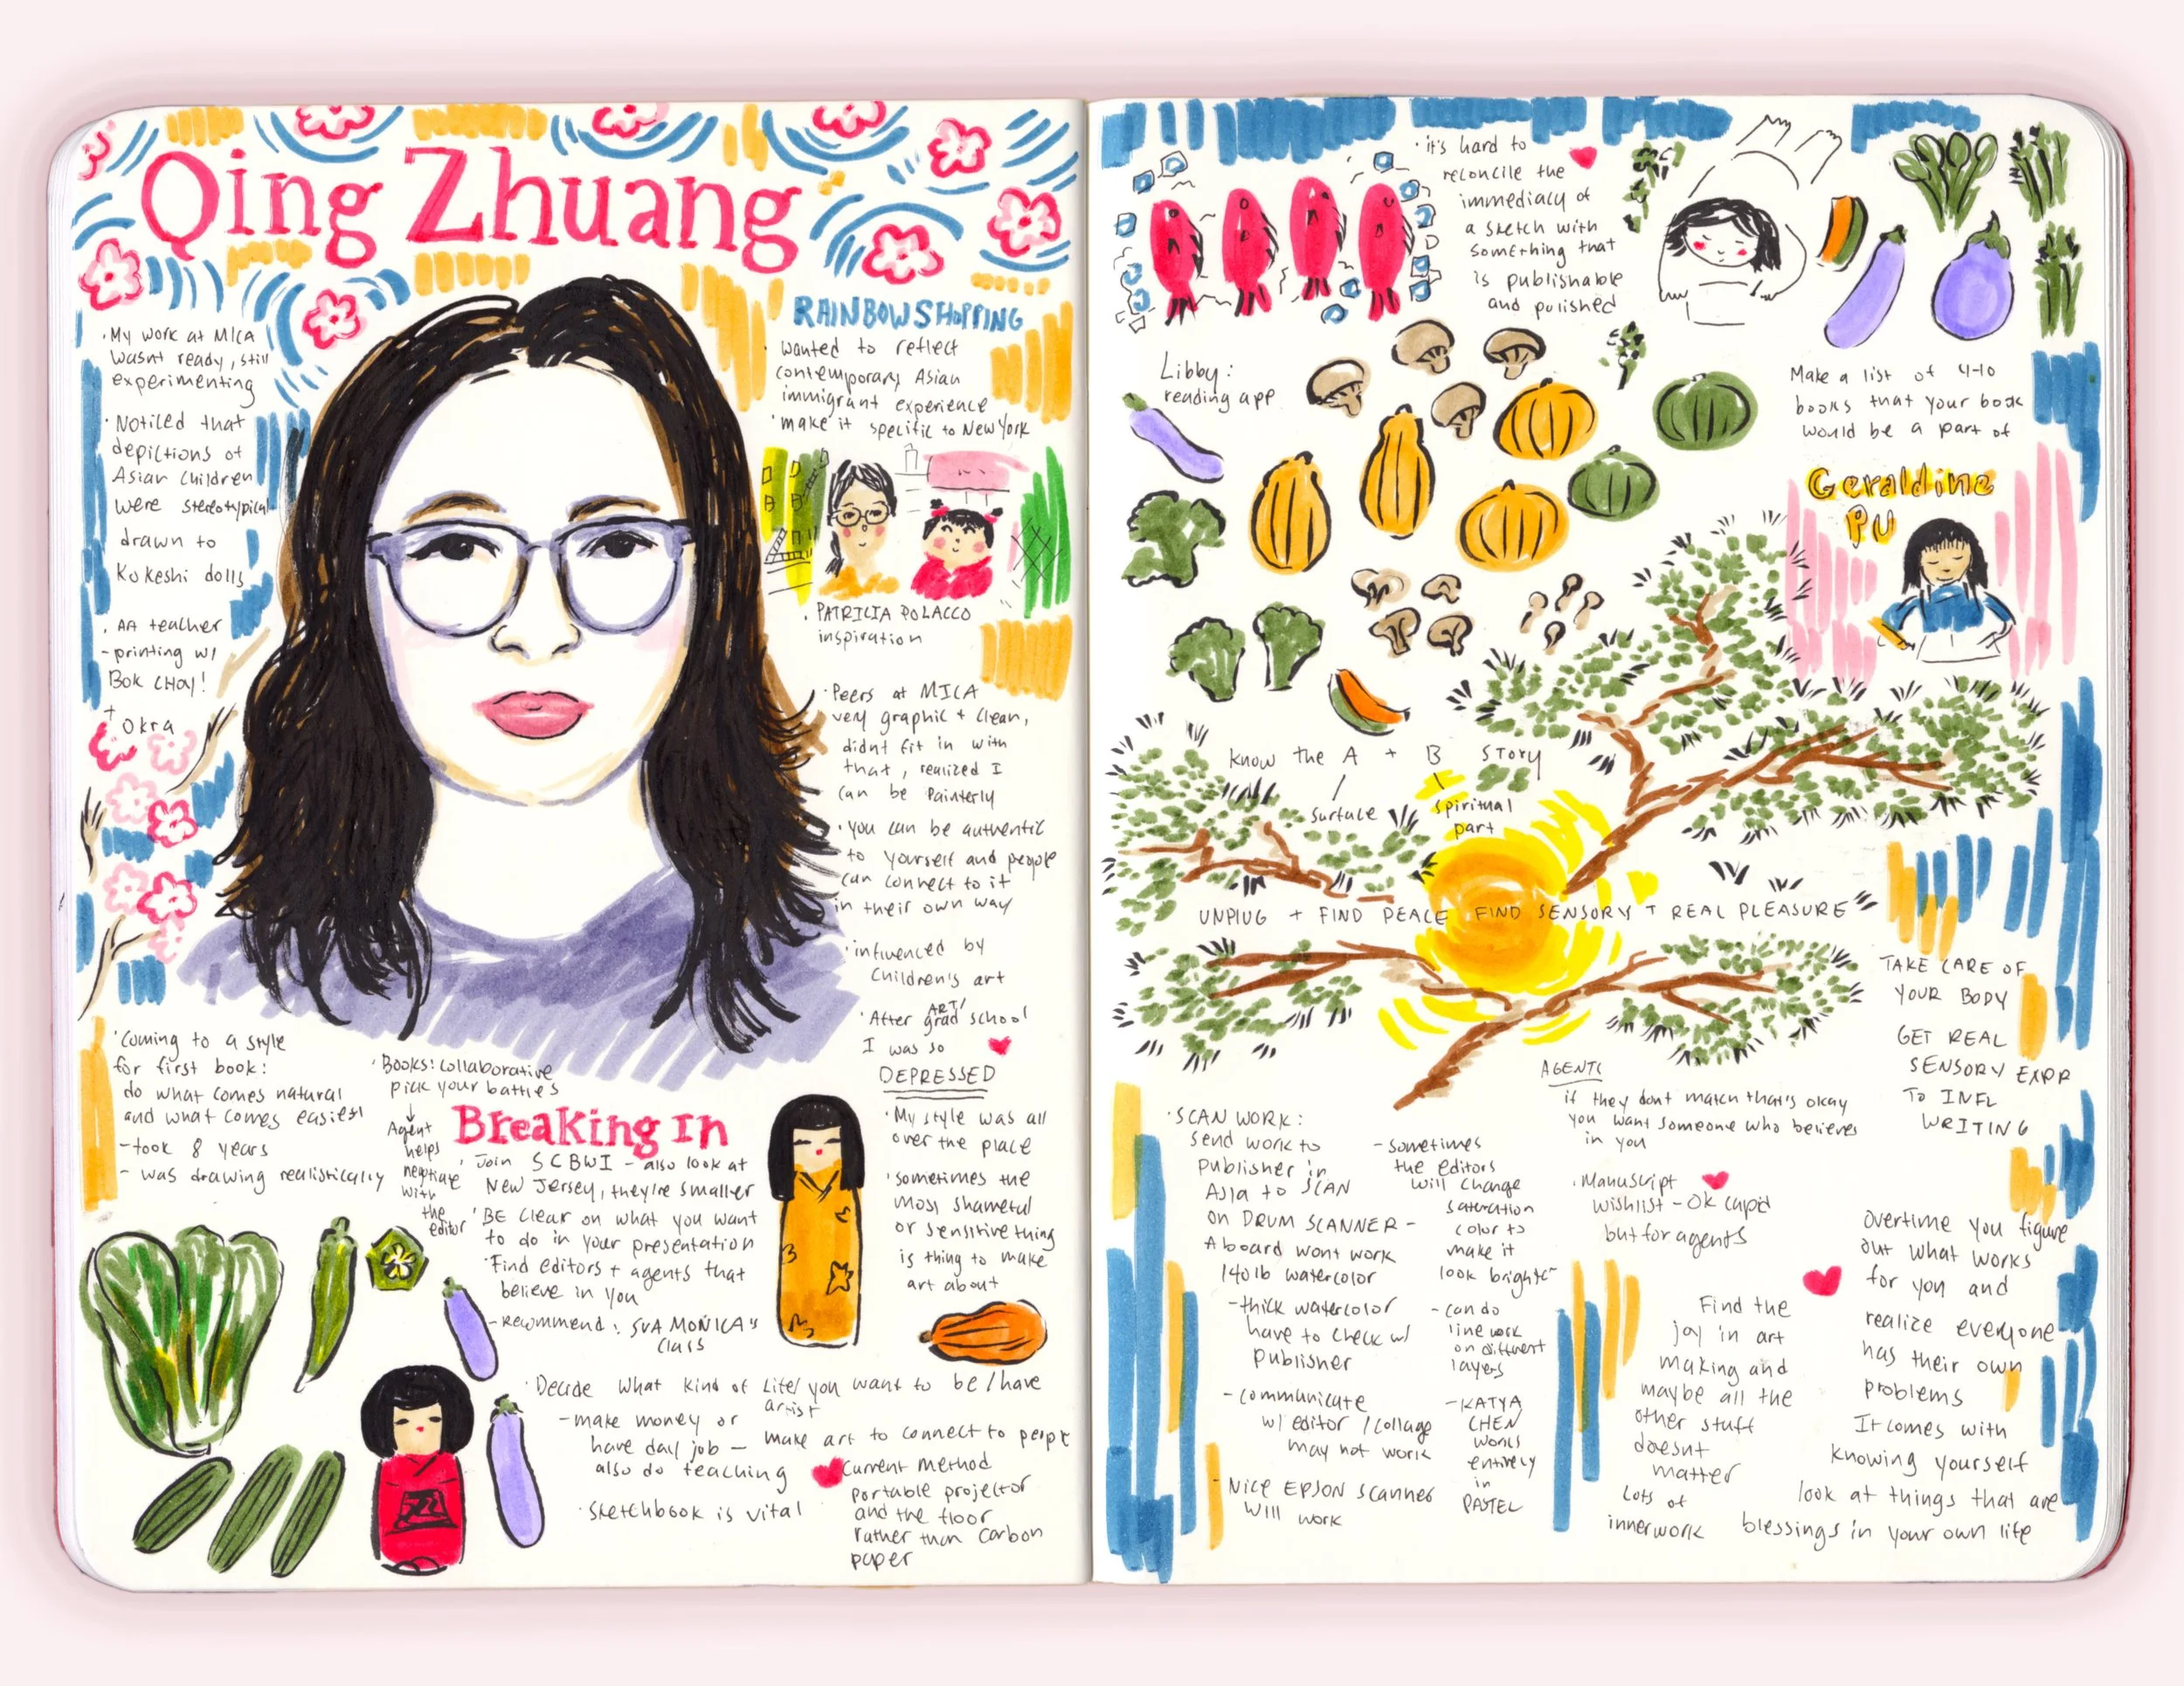 Qing Zhuang
· My work at MICA
wasnt ready, still
experimenting
· Noticed that
depictions of
Asian children
were stereotypical
drawn to
Kokeshi dolls
· AA teacher
- printing w/
Bok CHOY!
+
Okra
RAINBOW SHOPPING
· wanted to reflect
contemporary Asian
immigrant experience
· make it specific to New York
· PATRICIA POLACCO
inspiration
· Peers at MICA
very graphic + clean,
didnt fit in with
that, realized I
can be painterly
· you can be authentic
to yourself and people
can connect to it
in their own way
· influenced by
children's art
· After ART/
grad school
I was so
DEPRESSED
· My style was all
over the place
· sometimes the
most shameful
or sensitive thing
is thing to make
art about
· Coming to a style
for first book:
do what comes natural
and what comes easiest
- took 8 years
- was drawing realistically
· Books: collaborative
pick your battles
Agent
helps
negotiate
with
the
editor
Breaking In
· Join SCBWI - also look at
New Jersey, they're smaller
· BE clear on what you want
to do in your presentation
· Find editors + agents that
believe in you
- recommend: SVA MONICA's
class
· Decide what kind of life/ you want to be / have
artist
- make money or
have day job - make art to connect to people
also do teaching
· sketchbook is vital
Current method
portable projector
and the floor
rather than carbon
paper
· it's hard to
reconcile the
immediacy of
a sketch with
something that
is publishable
and polished
Libby:
reading app
Make a list of 4-10
books that your book
would be a part of
Geraldine
PU
Know the A + B STORY
surface
spiritual
part
UNPLUG + FIND PEACE FIND SENSORY + REAL PLEASURE
TAKE CARE OF
YOUR BODY
GET REAL
SENSORY EXPR
TO INFL
WRITING
AGENTS
if they dont match that's okay
you want someone who believes
in you
· Manuscript
wishlist - OK Cupid
but for agents
· SCAN WORK:
send work to
publisher in
Asia to SCAN
on DRUM SCANNER -
A board wont work
140lb watercolor
- thick watercolor
have to check w/
publisher
- communicate
w/ editor / collage
may not work
- Nice EPSON scanner
will work
- sometimes
the editors
will change
saturation
color to
make it
look brighter
- can do
line work
on different
layers
- KATYA
CHEN
works
entirely
in
PASTEL
Find the
joy in art
making and
maybe all the
other stuff
doesnt
matter
Lots of
innerwork
overtime you figure
out what works
for you and
realize everyone
has their own
problems
It comes with
knowing yourself
look at things that are
blessings in your own life